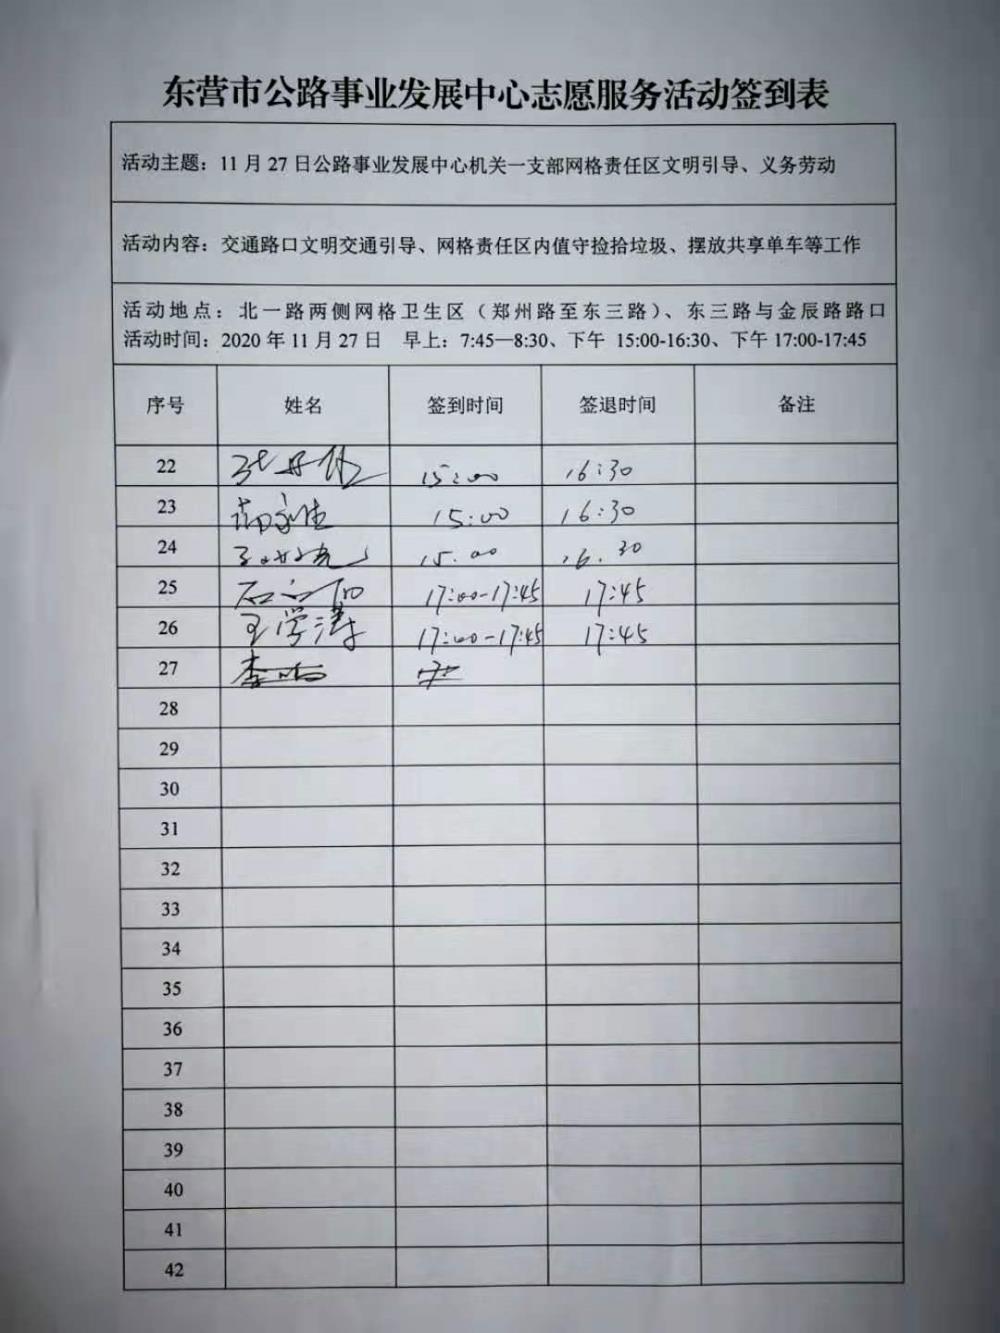 东营市公路事业发展中心志愿服务活动签到表
活动主题：11月27日公路事业发展中心机关一支部网格责任区文明引导、义务劳动
活动内容：交通路口文明交通引导、网格责任区内值守捡拾垃圾、摆放共享单车等工作
活动地点：北一路两侧网格卫生区（郑州路至东三路）、东三路与金辰路路口
活动时间：2020年11月27日 早上：7:45—8:30、下午 15:00-16:30、下午17:00-17:45
序号 姓名 签到时间 签退时间 备注
22 15:00 16:30
23 15:00 16:30
24 15.00 16.30
25 17:00-17:45 17:45
26 王学涛 17:00-17:45 17:45
27
28
29
30
31
32
33
34
35
36
37
38
39
40
41
42